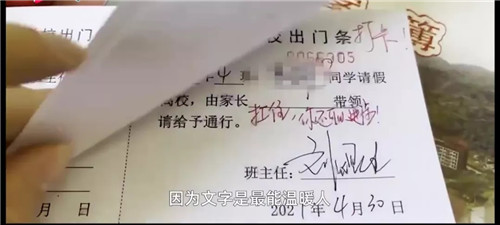 校出门条
校出门条 打卡!
4 班 同学请假
离校，由家长 带领，
扛住，
请给予通行。
班主任： 刘
因为文字是最能温暖人
月 日
2021年4月30日